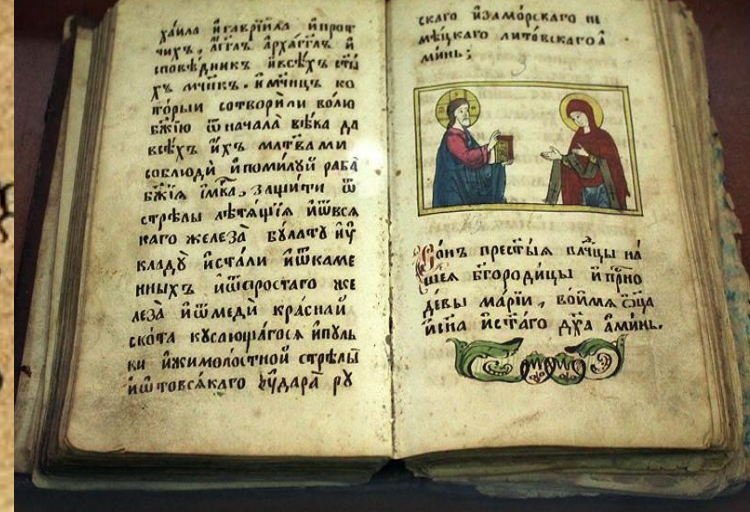 хаила и гаврїила ипроч
чихъ, а҆гг҃лъ а҆рха́гг҃лъ и҆
сповѣдникъ ивсѣ́хъ ст҃ы
хъ мч҃никъ. и҆мч҃ницъ ко
то́рыи сотвори́ли во́лю
бж҃їю ѿ начала̀ вѣ́ка да
всѣ́хъ и҆́хъ мл҃твами
соблюдѝ и҆поми́луй раба̀
бж҃їѧ и҆м҃ка, защити ѿ
стрѣлы̀ лѣтѧ́щїѧ и҆ѿвсѧ
каго желе́за̀ була́ту и҆у
кладу̀ и҆ста́ли и҆ѿкаме
нныхъ и҆ѿпростаго же
ле́за̀ и҆ѿме́ди кра́снаѝ
ско́та кусающагосѧ и҆пуль
ки и҆жи́молостной стрѣлы̀
и҆ѿтовсѧ́каго оу҆́дара̀ ру
скаго и҆замо́рскаго не
ме́цкаго лито́вскаго а҆
ми́нь;
Со́нъ прест҃ы́ѧ влⷣчцы на́
шеѧ бг҃оро́дицы и҆прⷭ҇но
де́вы мары́и, во́имѧ ѻ҆ц҃а
и҆сн҃а и҆ст҃аго дх҃а а҆ми́нь.